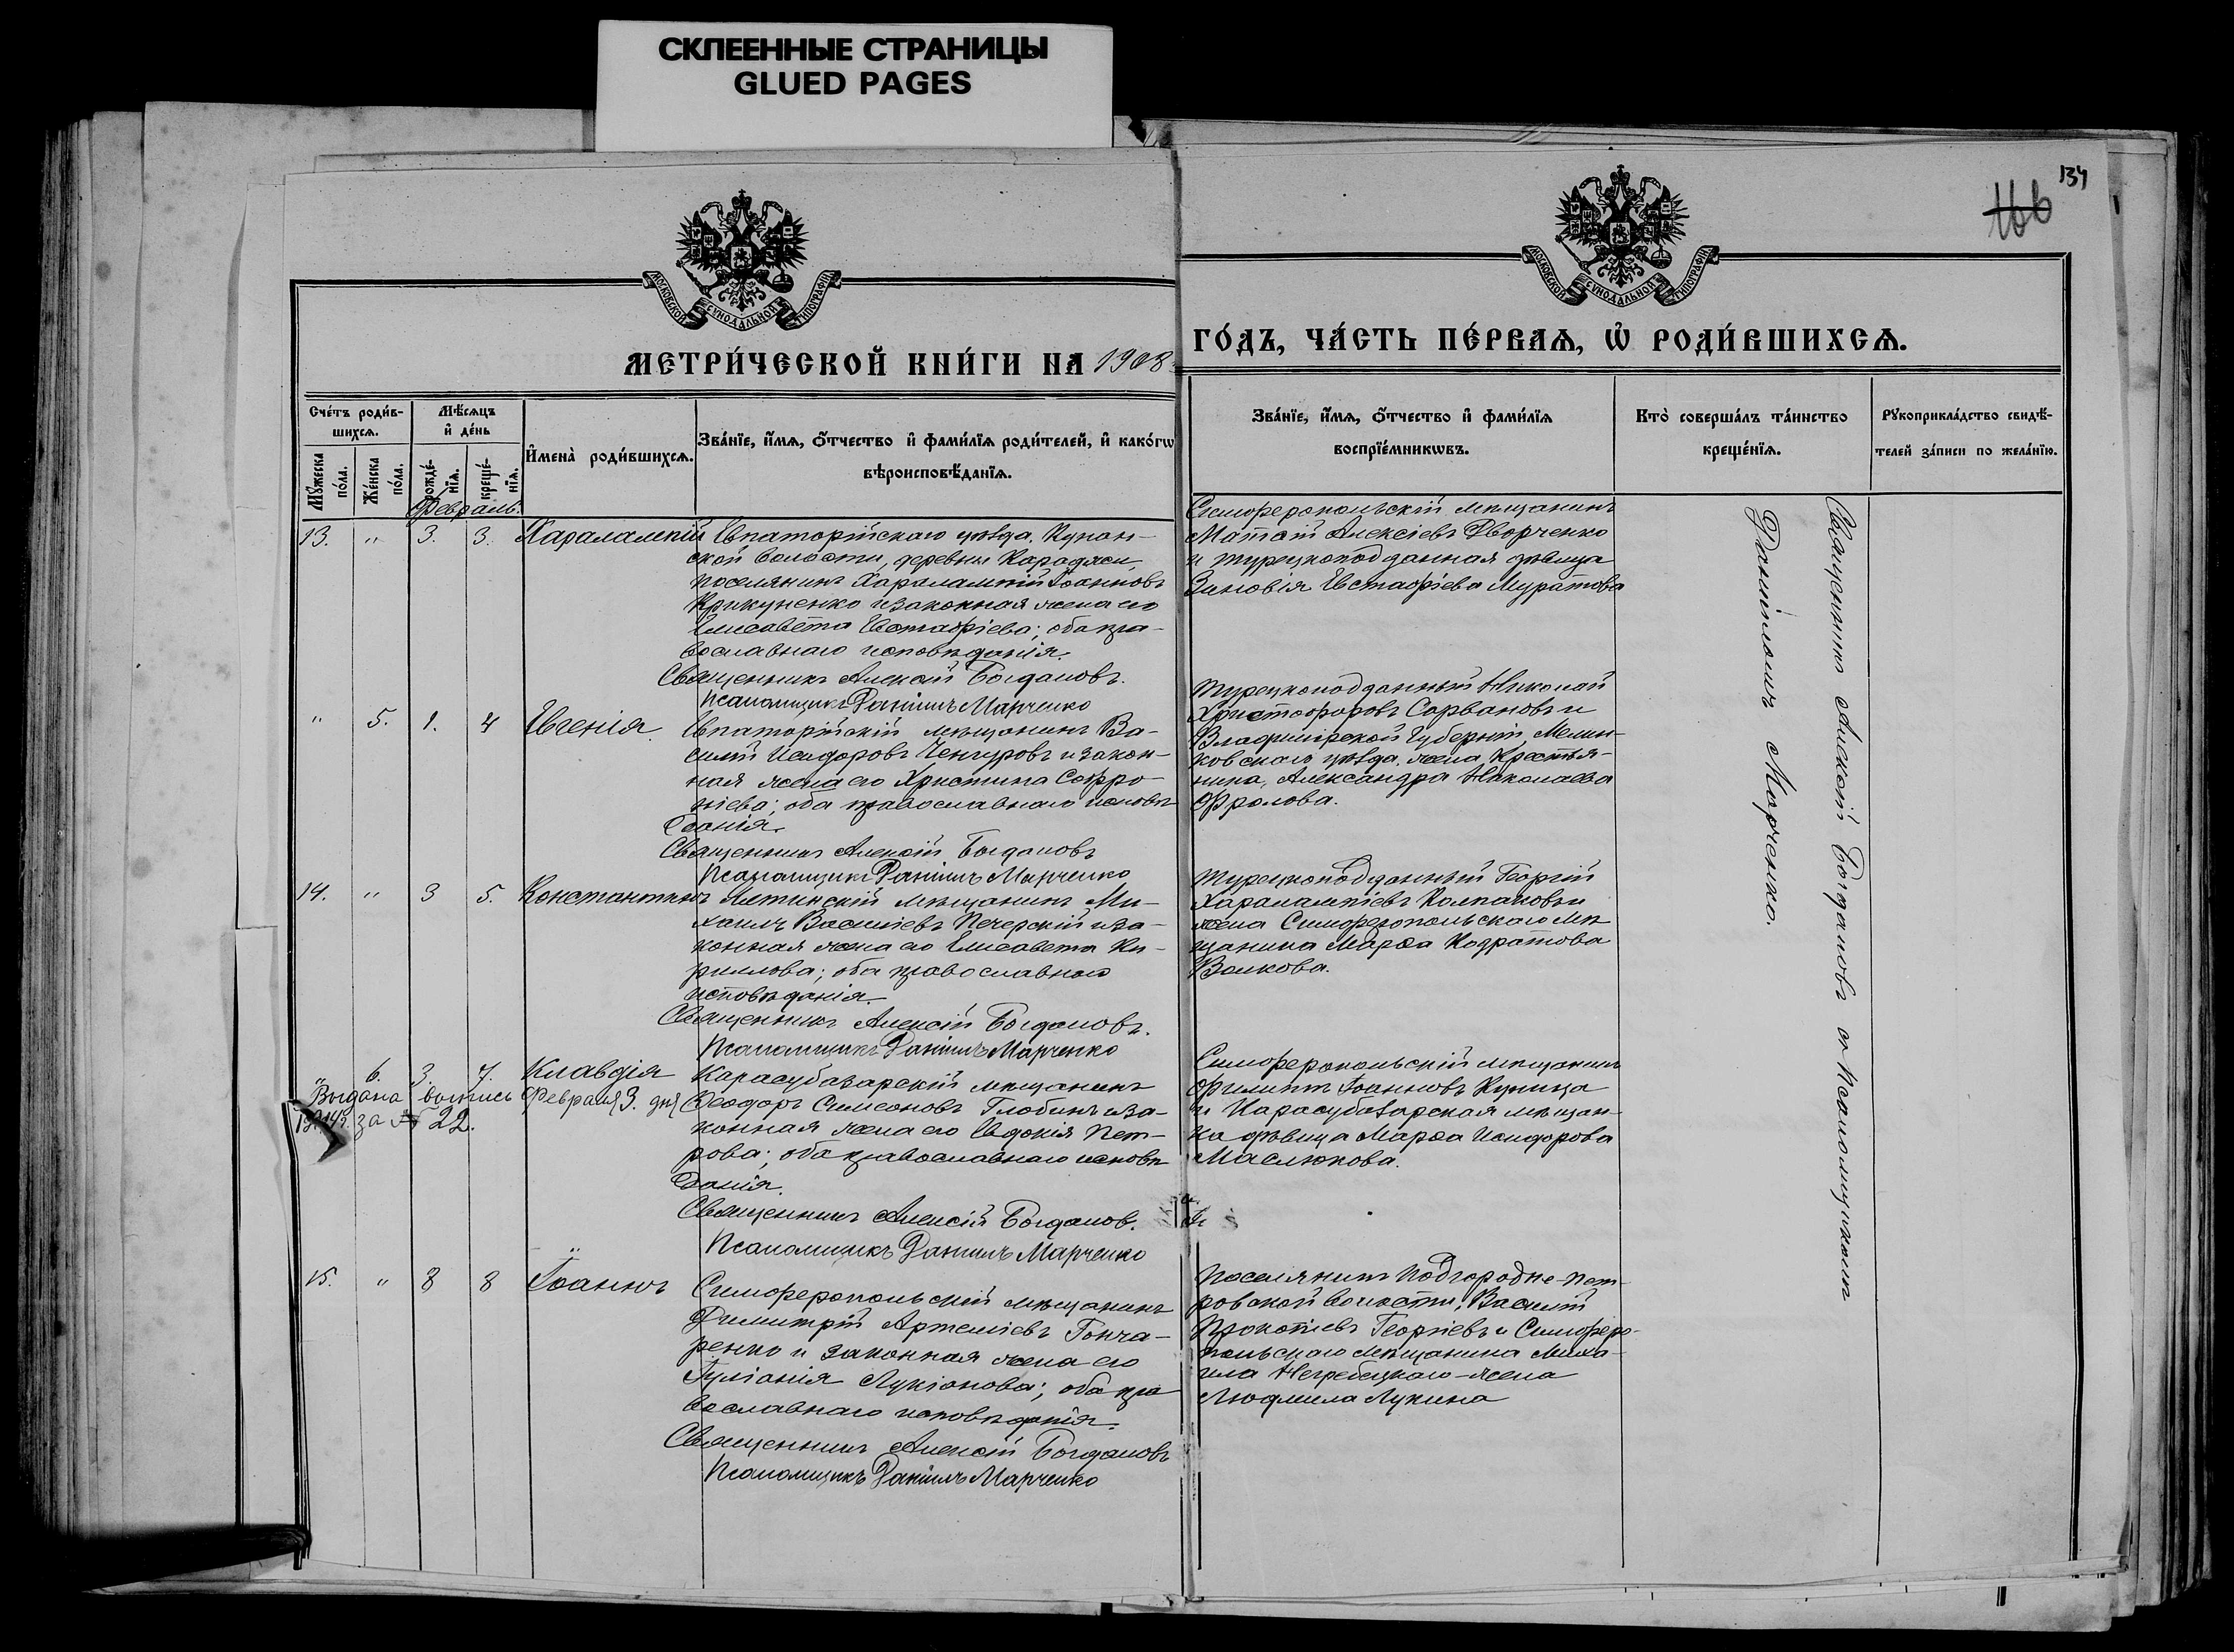 СКЛЕЕННЫЕ СТРАНИЦЫ
GLUED PAGES
134
166
МОСКОВСКОЙ СѴНОДАЛЬНОЙ ТИПОГРАФІИ
МОСКОВСКОЙ СѴНОДАЛЬНОЙ ТИПОГРАФІИ
МЕТРИ́ЧЕСКОЙ КНИ́ГИ НА 1908
ГО́ДЪ, ЧА́СТЬ ПЕ́РВАѦ, Ѡ҆ РОДИ́ВШИХСѦ.
Сче́тъ роди́в-
шихсѧ.
Му́жеска
по́ла.
Же́нска
по́ла.
Мѣ́сѧцъ
и҆ де́нь
рожде́-
нїѧ.
креще́-
нїѧ.
И҆мена̀ роди́вшихсѧ.
Зва́нїе, и҆́мѧ, ѻ҆́тчество и҆ фами́лїѧ роди́телей, и҆ како́гѡ
вѣроисповѣ́данїѧ.
Зва́нїе, и҆́мѧ, ѻ҆́тчество и҆ фами́лїѧ
воспрїе́мникѡвъ.
Кто̀ соверша́лъ та́инство
креще́нїѧ.
Рꙋкоприкла́дство свидѣ́-
телей за́писи по жела́нїю.
Февраль.
13. " 3. 3. Харалампій
Евпаторійскаго уѣзда, Кунан-
ской волости, деревни Карадяси,
поселянинъ Харалампій Іоанновъ
Крикуненко и законная жена его
Елисавета Евстафіева; оба пра-
вославнаго исповѣданія.
Священникъ Алексій Богдановъ.
Псаломщикъ Даніилъ Марченко
Симферопольскій мѣщанинъ
Матѳій Алексіевъ Дворченко
и турецкоподданная дѣвица
Зиновія Евстафіева Муратова
" 5. 1. 4 Евгенія.
Евпаторійскій мѣщанинъ Ва-
силій Исидоровъ Ченгуровъ и закон-
ная жена его Христина Софро-
ніева; оба православнаго исповѣ-
данія.
Священникъ Алексій Богдановъ
Псаломщикъ Даніилъ Марченко
Турецкоподданный Николай
Христофоровъ Сарвановъ и
Владимірской Губерніи, Мелин-
ковскаго уѣзда, жена Крестья-
нина, Александра Николаева
Фролова.
14. " 3 5. Константинъ
Ялтинскій мѣщанинъ Ми-
хаилъ Василіевъ Печерскій и за-
конная жена его Елисавета Ки-
риллова; оба православнаго
исповѣданія.
Священникъ Алексій Богдановъ.
Псаломщикъ Даніилъ Марченко
Турецкоподданный Георгій
Харалампіевъ Колпаковъ и
жена Симферопольскаго мѣ-
щанина Марѳа Кодратова
Волкова.
" 6. 3. 7. Клавдія
Выдана выпись Февраля 3. дня
за № 22.
Карасубазарскій мѣщанинъ
Ѳеодоръ Симеоновъ Глобинъ и за-
конная жена его Евдокія Пет-
рова; оба православнаго исповѣ-
данія.
Священникъ Алексій Богданов.
Псаломщикъ Даніилъ Марченко
Симферопольскій мѣщанинъ
Филиппъ Іоанновъ Куница
и Карасубазарская мѣщан-
ка дѣвица Марѳа Исидорова
Маслюкова.
15. " 8 8 Іоаннъ
Симферопольскій мѣщанинъ
Димитрій Артеміевъ Гонча-
ренко и законная жена его
Іуліанія Лукіанова; оба пра-
вославнаго исповѣданія.
Священникъ Алексій Богдановъ
Псаломщикъ Даніилъ Марченко
Поселянинъ Подгородне-Пет-
ровской волости, Василій
Прокопіевъ Георгіевъ и Симферо-
польскаго мѣщанина Миха-
ила Негребецкаго жена
Людмила Лукина
Священникъ Алексій Богдановъ съ Псаломщикомъ
Даніиломъ Марченко.